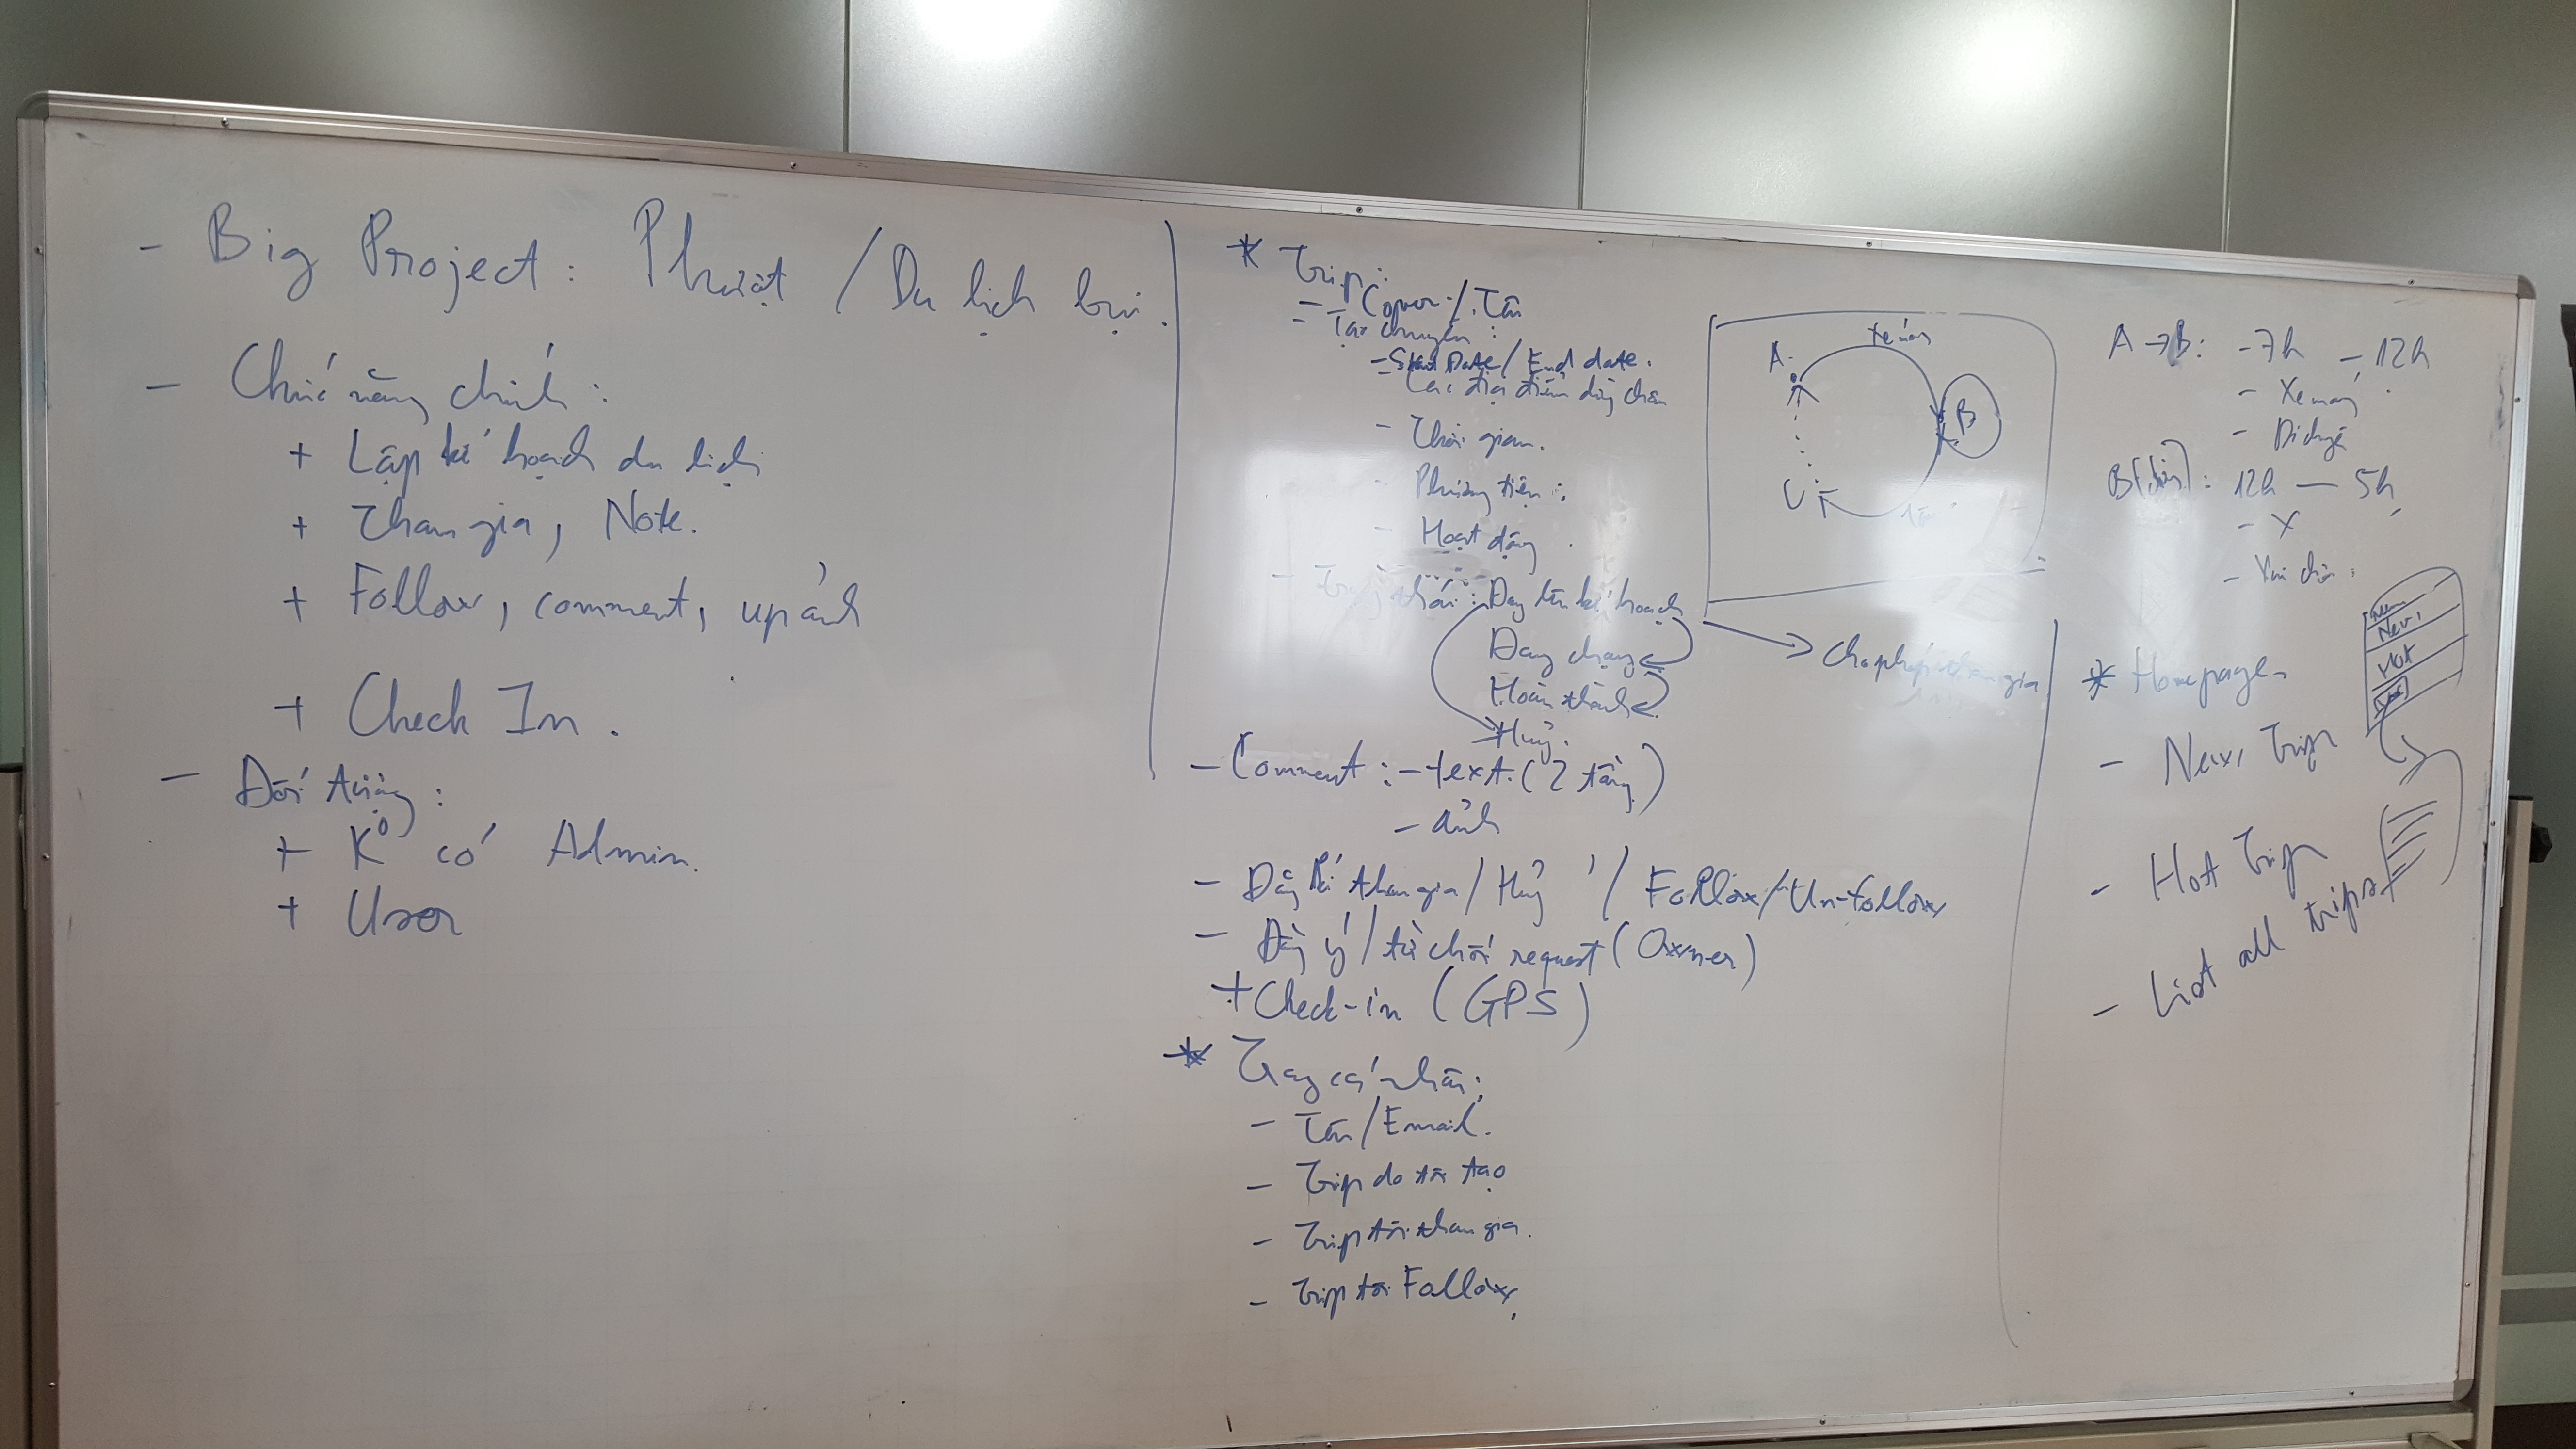 - Big Project: Phượt / Du lịch bụi.
- Chức năng chính:
+ Lập kế hoạch du lịch
+ Tham gia, Note.
+ Follow, comment, up ảnh
+ Check In.
- Đối tượng:
+ K° có Admin.
+ User
* Trip:
- Cover / Tên
- Tạo chuyến:
- Start Date / End date.
- Các địa điểm dừng chân
- Thời gian.
- Phương tiện:
- Hoạt động.
- Trạng thái: Đang lên kế hoạch
Đang chạy
Hoàn thành
Huỷ.
- Comment: - text. (2 tầng)
- ảnh
- Đăng kí tham gia / Huỷ / Follow / Un-follow
- Đồng ý / từ chối request (Owner)
+ Check-in (GPS)
* Trang cá nhân:
- Tên / Email.
- Trip do tôi tạo
- Trip tôi tham gia.
- Trip tôi Follow
A
Xe máy
B
C
Cho phép tham gia
A → B: - 7h - 12h
- Xe máy
- Di chuyển
B : 12h - 5h
- X
* Homepage
- New Trip
- Hot Trip
- List all trips
New
Hot